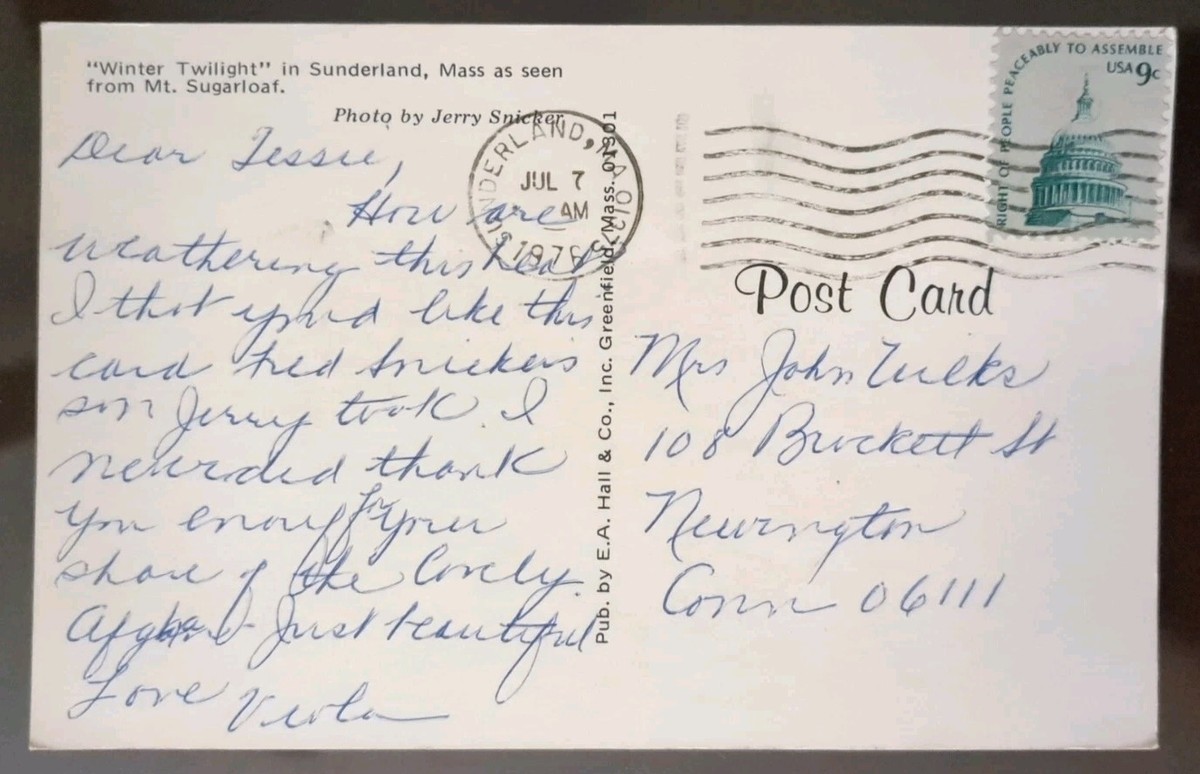 "Winter Twilight" in Sunderland, Mass as seen
from Mt. Sugarloaf.
Photo by Jerry Snicker
Dear Tessie,
How are
weathering this heat
I that you'd like this
card Fred Snickers
son Jerry took. I
thank
you enouf for your
share of the lovely
Afghan - Just beautiful
Love Viola
SUNDERLAND, MA 01375
JUL 7
AM
Pub. by E.A. Hall & Co., Inc. Greenfield, Mass. 01301
RIGHT OF PEOPLE PEACEABLY TO ASSEMBLE
USA 9c
Post Card
Mrs John
108 Brockett St
Newington
Conn 06111